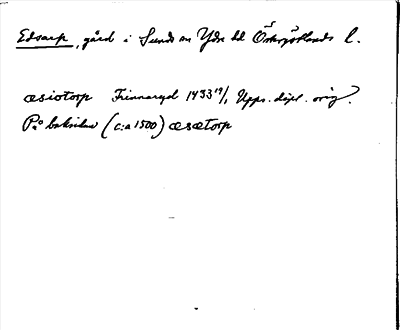 Edsarp, gård i Sunds sn Ydre hd Östergötlands l.
æsiotorp Frinnaryd 1433 19/1 Upps. dipl. orig.
På baksidan (c:a 1500) æsætorp